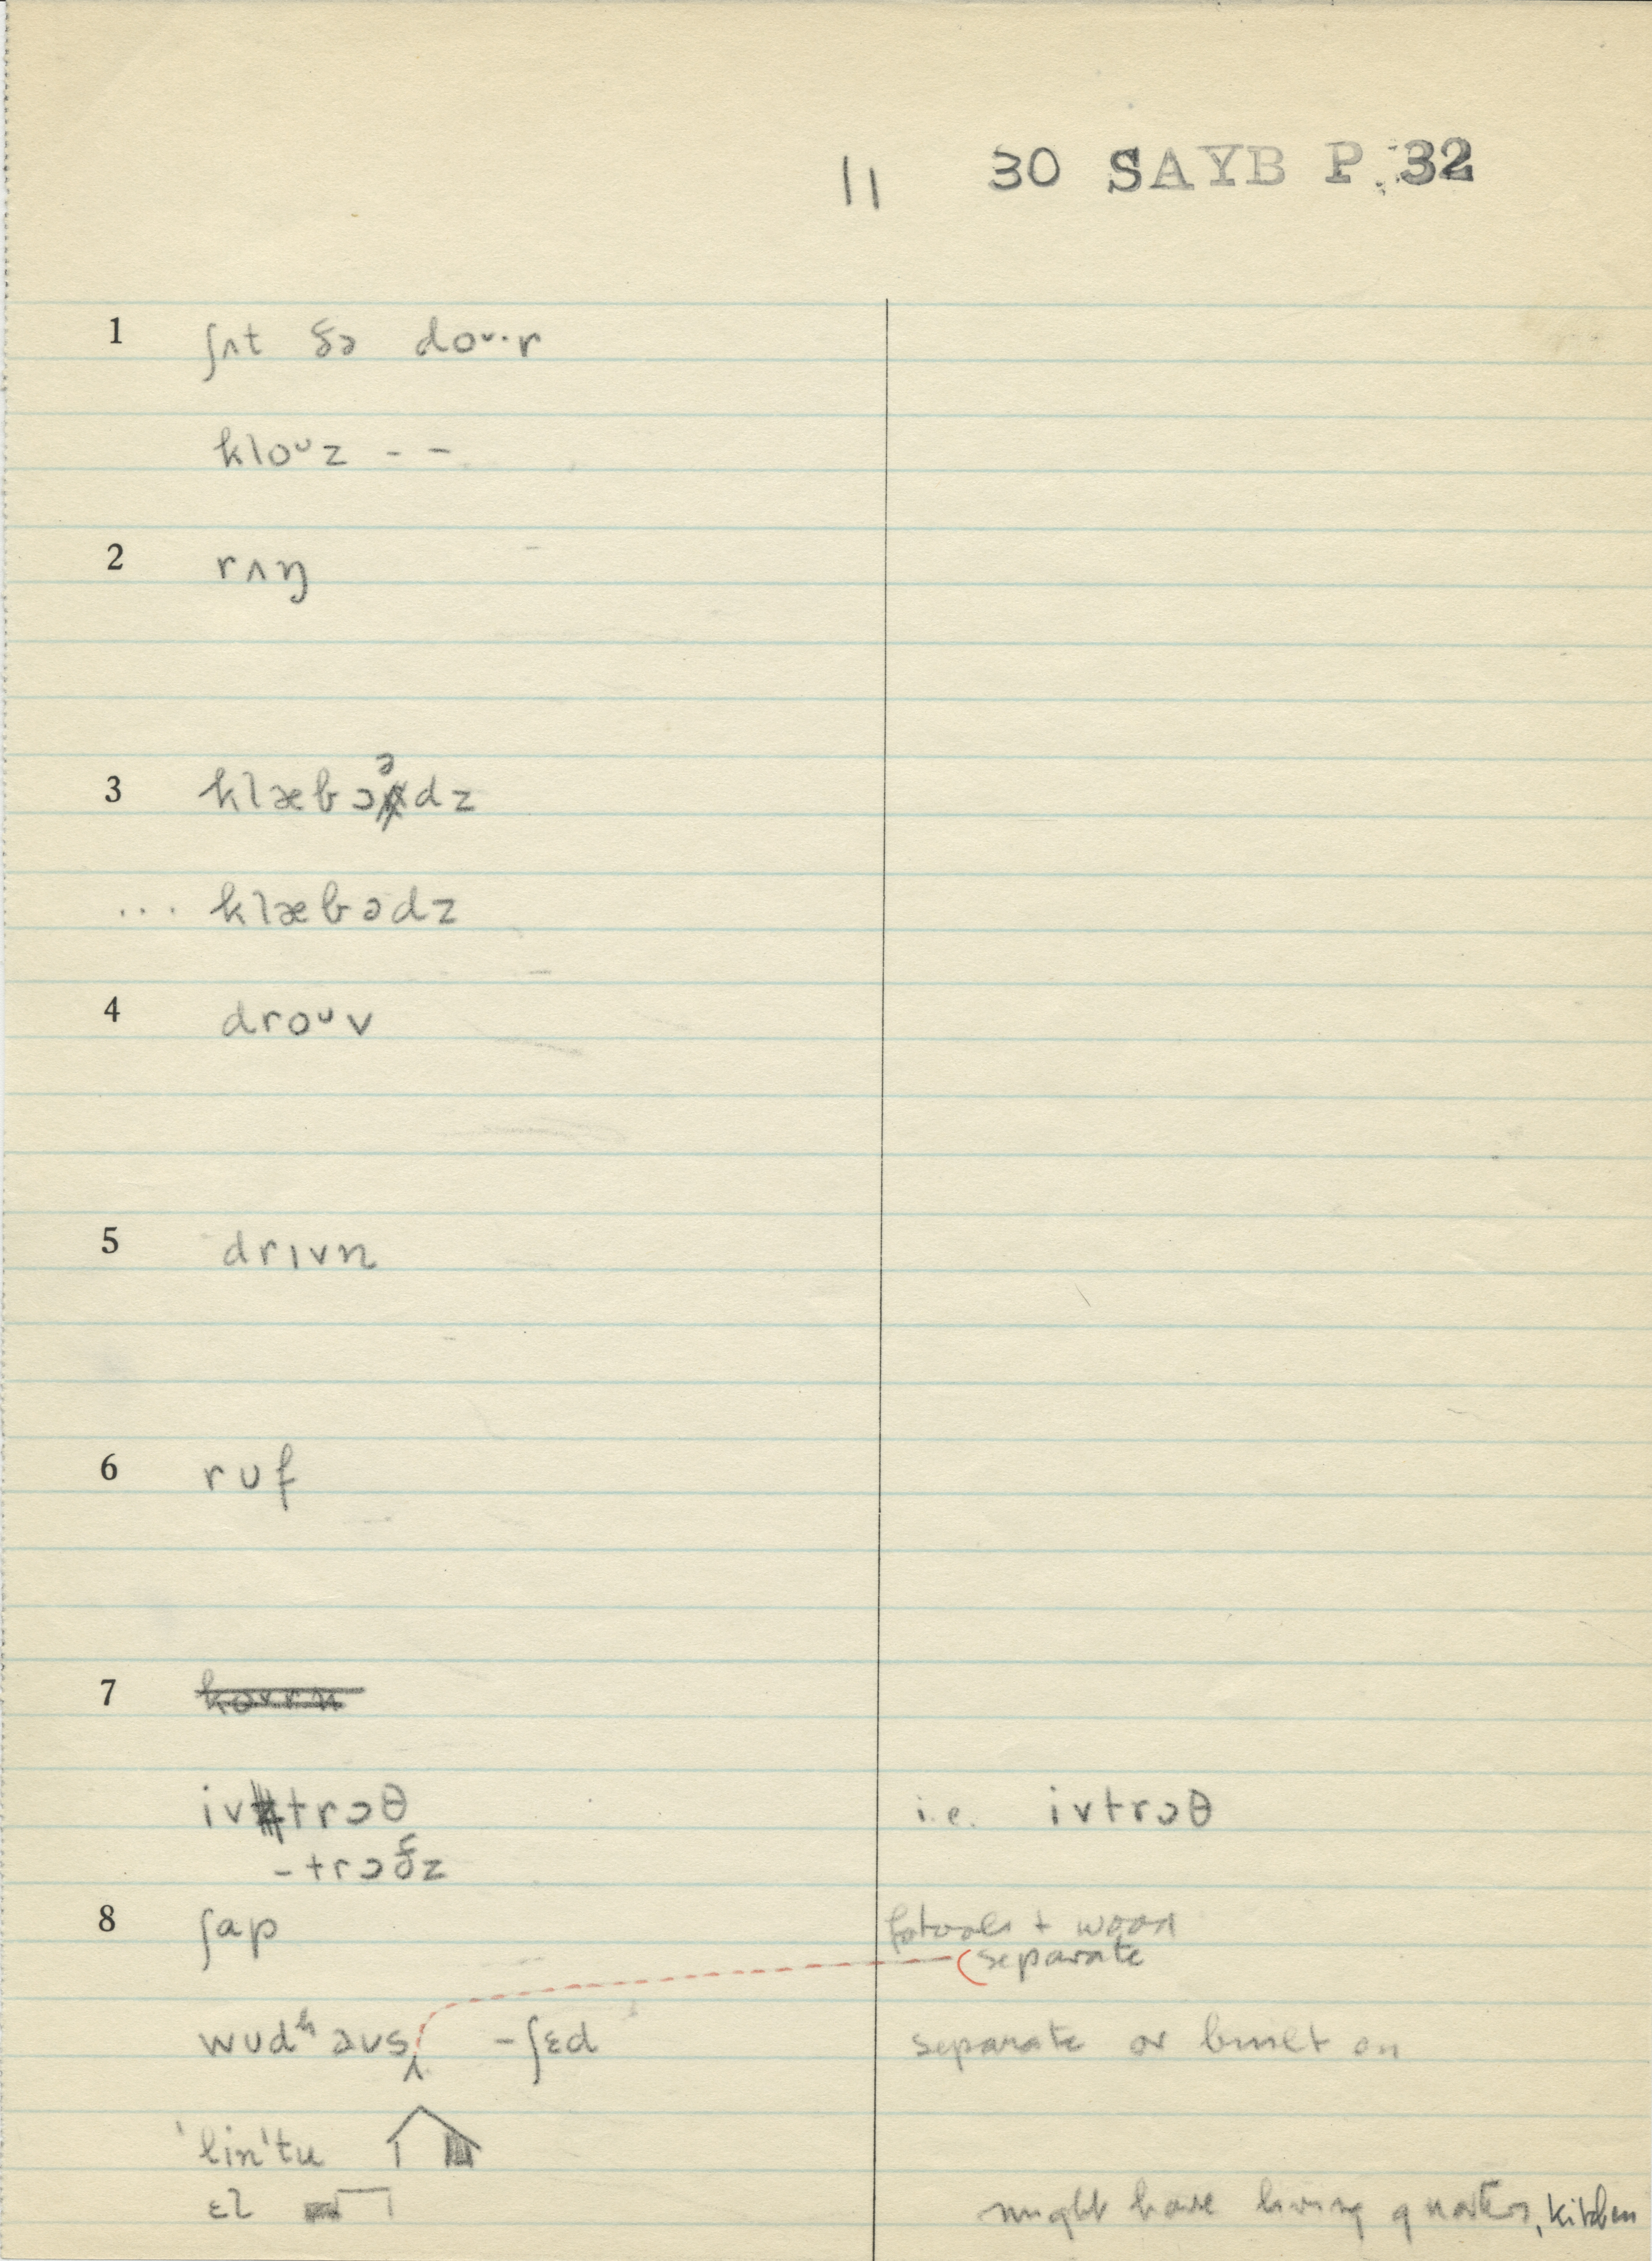 11 30 SAYB P. 32
1 ʃʌt ðə doᴜ·r
kloᴜz - -
2 rʌŋ
3 klæbɔᵊdz
... klæbədz
4 droᴜv
5 drɪvn
6 rᴜf
7
ivtrɔθ i.e. ivtrɔθ
-trɔðz
8 ʃap for tools + wood
(separate
wᴜdʰaᴜs -ʃɛd separate or built on
'lin'tu
ɛl might have living quarters, kitchen